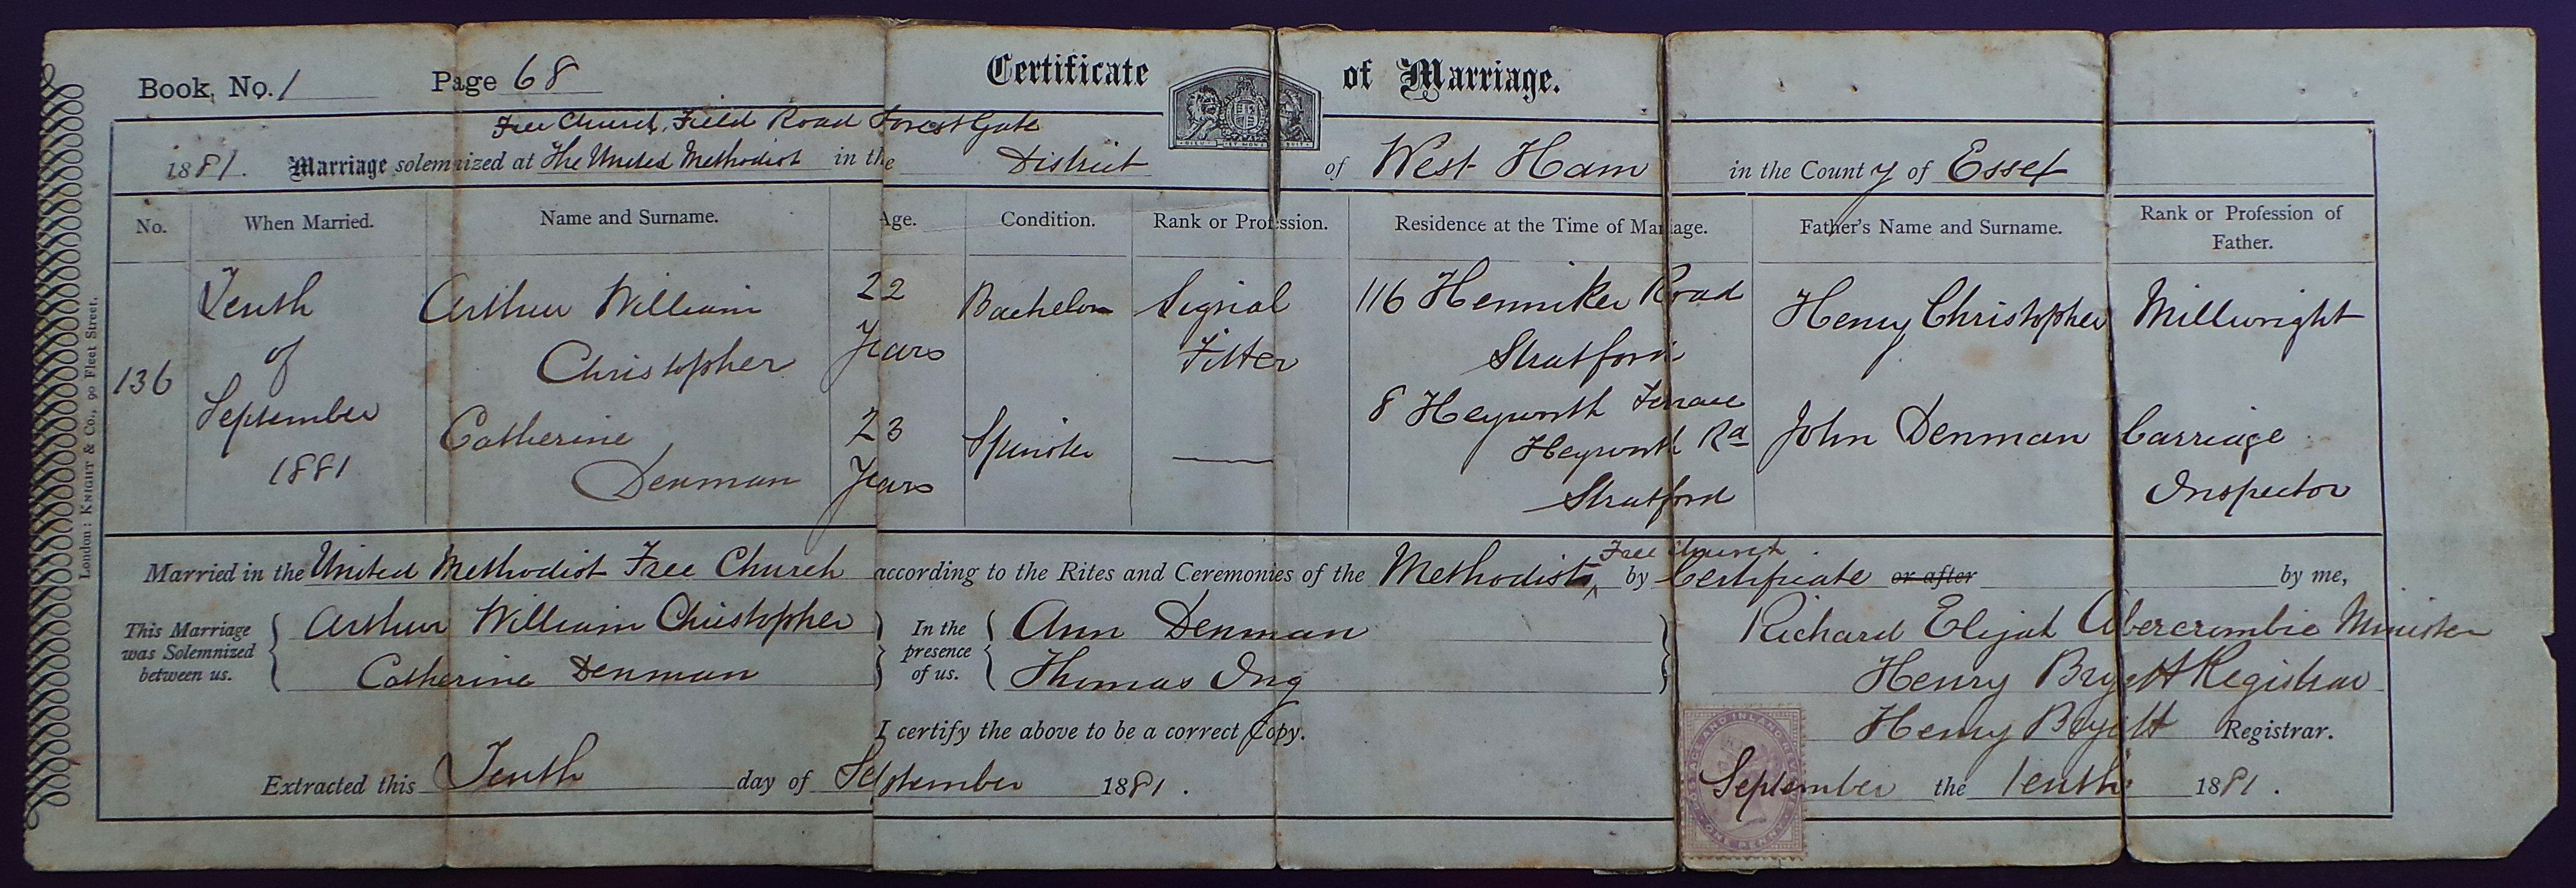 Book No. 1 Page 68 Certificate of Marriage.
Free Church, Field Road Forest Gate
1881. Marriage solemnized at The United Methodist in the District of West Ham in the County of Essex
No. When Married. Name and Surname. Age. Condition. Rank or Profession. Residence at the Time of Marriage. Father's Name and Surname. Rank or Profession of Father.
136
Tenth
of
September
1881
Arthur William
Christopher
22
Years
Bachelor
Signal
Fitter
116 Henniker Road
Stratford
Henry Christopher
Millwright
Catherine
Denman
23
Years
Spinster
8 Heyworth Terrace
Heyworth Rd
Stratford
John Denman
Carriage
Inspector
Married in the United Methodist Free Church according to the Rites and Ceremonies of the Methodist Free Church by Certificate or after by me,
This Marriage was Solemnized between us.
Arthur William Christopher
Catherine Denman
In the presence of us.
Ann Denman
Thomas Ing
Richard Elijah Abercrombie Minister
Henry Registrar
I certify the above to be a correct Copy.
Henry Registrar.
Extracted this Tenth day of September 1881.
September the Tenth 1881.
POSTAGE AND INLAND REVENUE
ONE PENNY
DIEU ET MON DROIT
London: KNIGHT & Co., 90 Fleet Street.